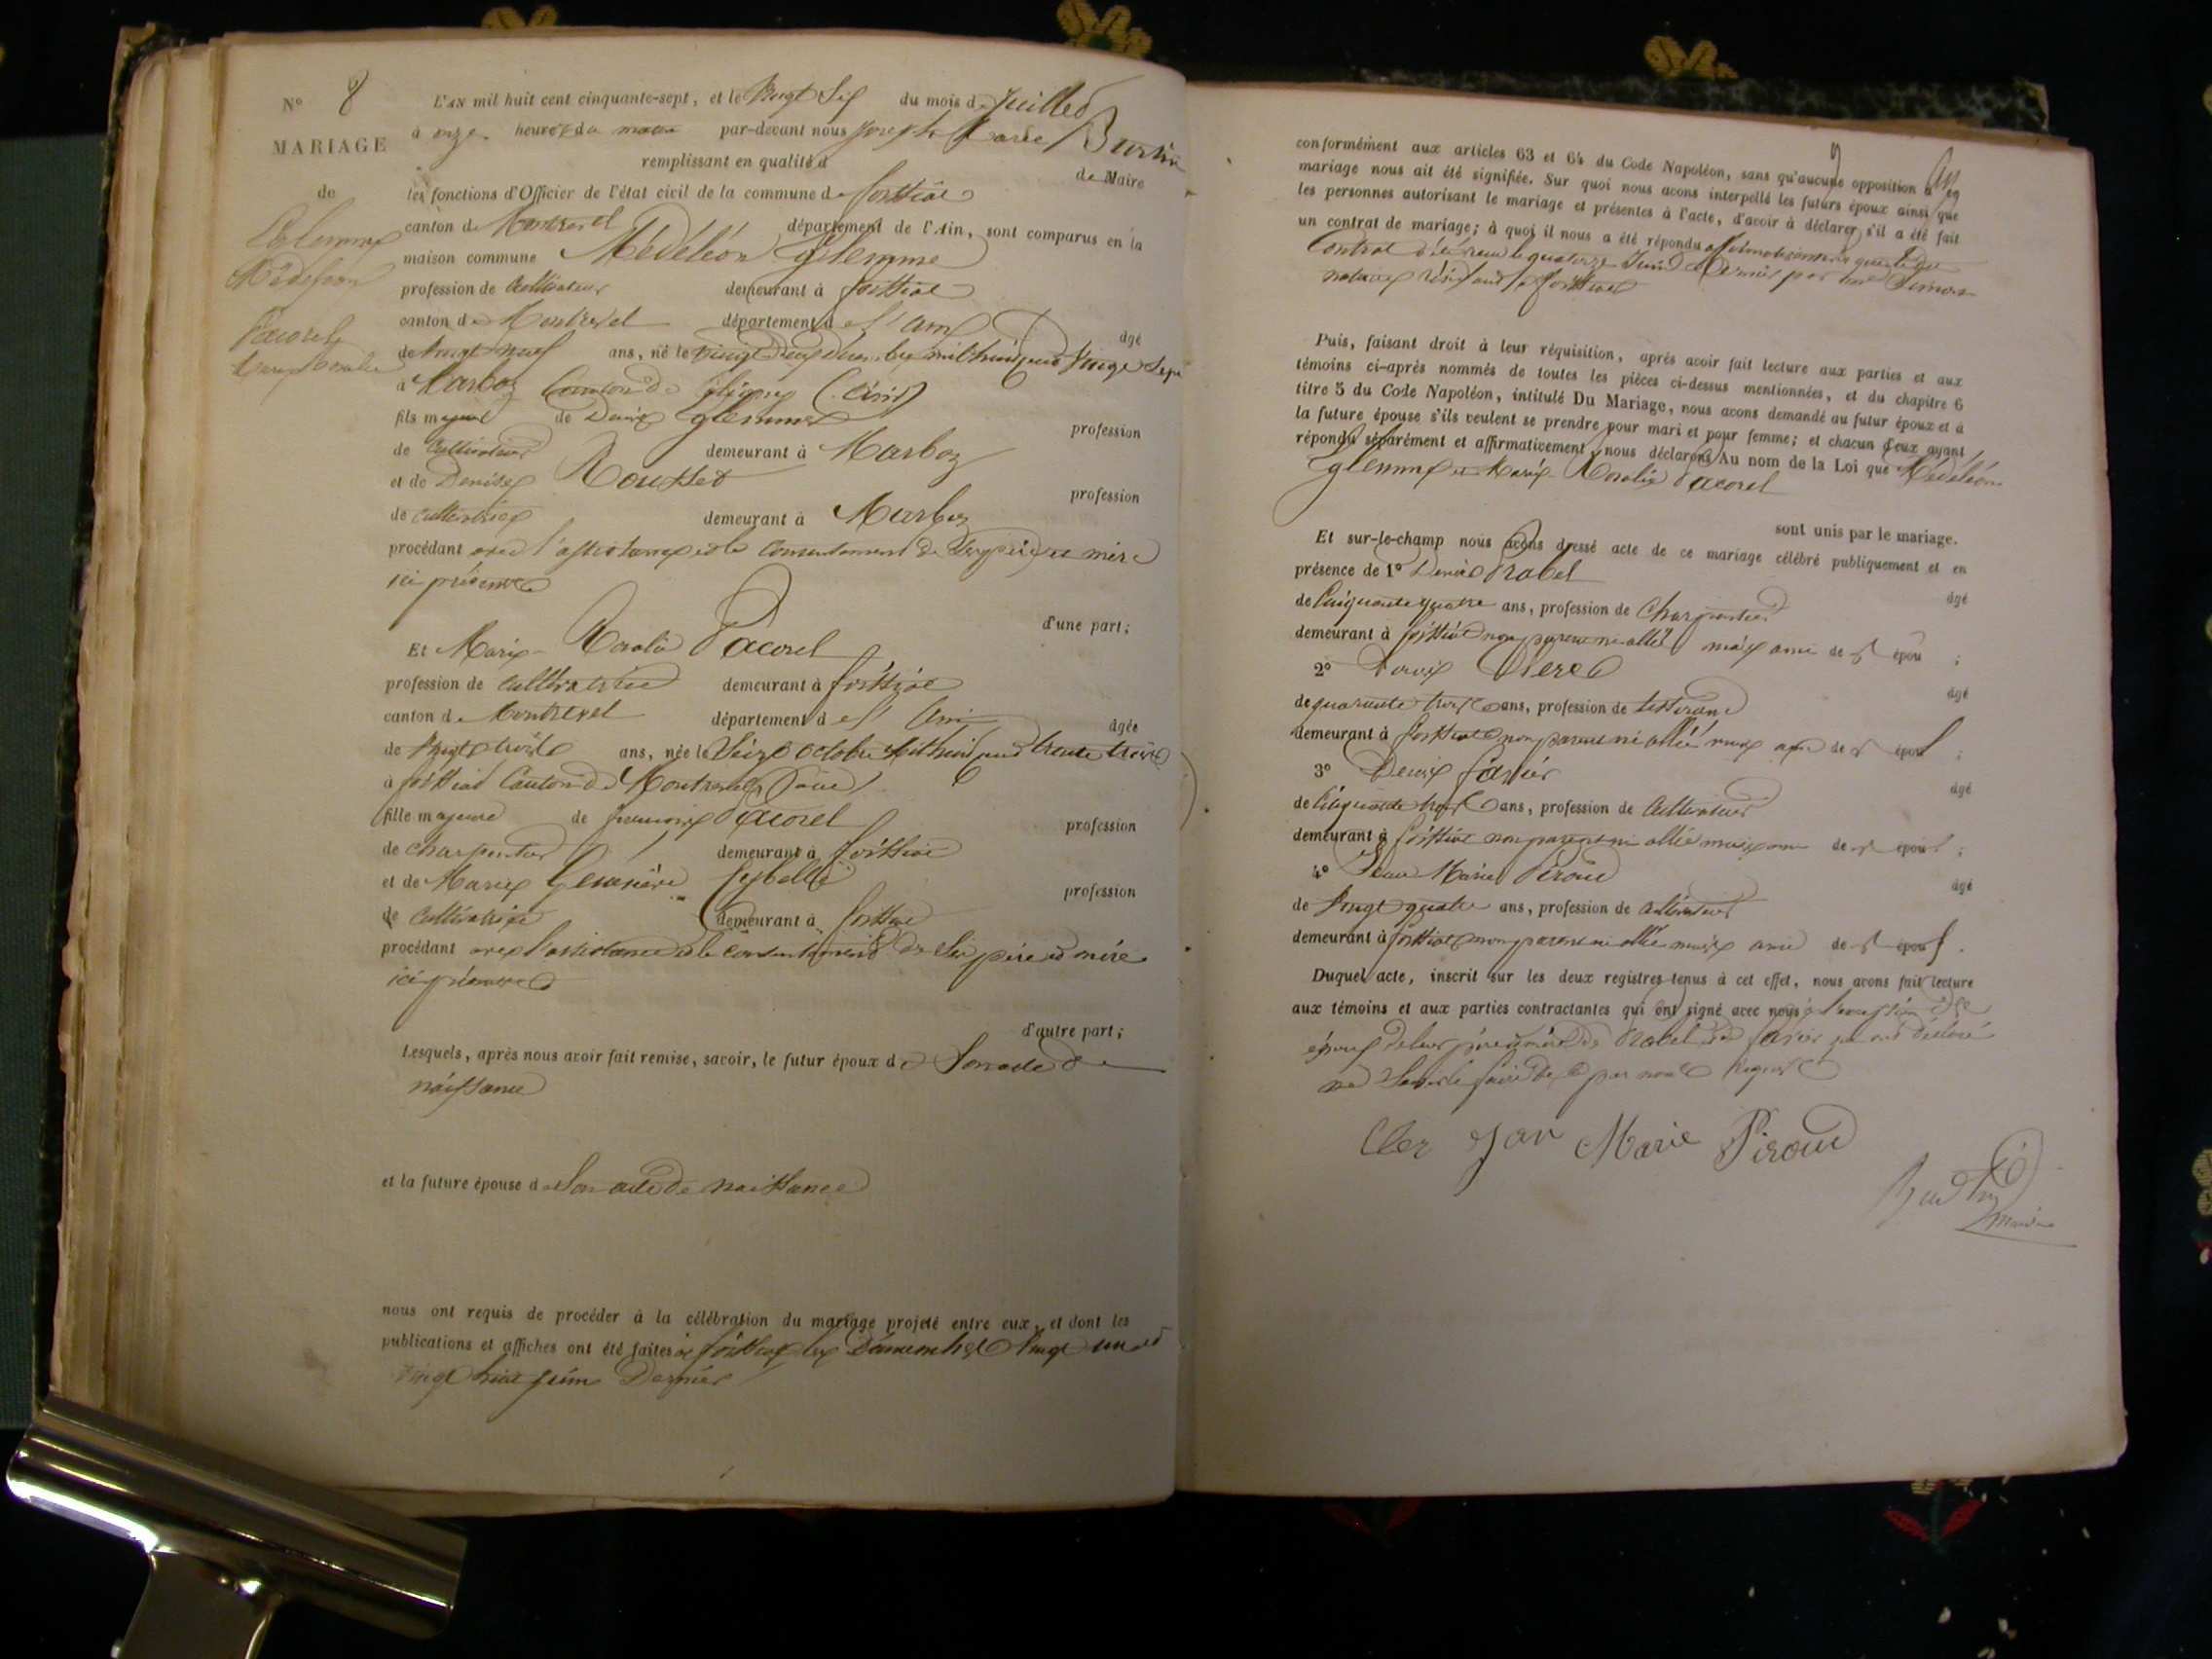 N° 8
MARIAGE
de
Médéléon
L'AN mil huit cent cinquante-sept, et le Vingt Six du mois de Juillet
à onze heures du matin par-devant nous Joseph Marie Burtin
remplissant en qualité de Maire
les fonctions d'Officier de l'état civil de la commune de foissiat
canton de Montrevel département de l'Ain, sont comparus en la
maison commune Médéléon glemme
profession de Cultivateur demeurant à foissiat
canton de Montrevel département de l'ain âgé
de vingt neuf ans, né le vingt deux mil huit cent vingt sept
à Marboz Canton de (ain)
fils majeur de Denis glemme profession
de Cultivateur demeurant à Marboz
et de Denise Rousset profession
de cultivatrice demeurant à Marboz
procédant avec l'assistance et le consentement de père et mère
ici présents
d'une part;
Et Marie Rosalie Pacorel
profession de cultivatrice demeurant à foissiat
canton de Montrevel département de l'Ain âgée
de Vingt trois ans, née le Seize octobre Mil huit cent trente trois
à foissiat Canton de Montrevel (ain)
fille majeure de françois Pacorel profession
de charpentier demeurant à foissiat
et de Marie Genevière profession
de Cultivatrice demeurant à foissiat
procédant avec l'assistance et le consentement de Ses père et mère
ici présents
d'autre part;
Lesquels, après nous avoir fait remise, savoir, le futur époux de Son acte de
naissance
et la future épouse de Son acte de naissance
nous ont requis de procéder à la célébration du mariage projeté entre eux, et dont les
publications et affiches ont été faites à foissiat les Dimanches Vingt un et
vingt huit juin Dernier
conformément aux articles 63 et 64 du Code Napoléon, sans qu'aucune opposition à ce
mariage nous ait été signifiée. Sur quoi nous avons interpellé les futurs époux ainsi que
les personnes autorisant le mariage et présentes à l'acte, d'avoir à déclarer s'il a été fait
un contrat de mariage; à quoi il nous a été répondu affirmativement que le dit
Contrat a été reçu le quatorze Juin Dernier par me
notaire résidant à foissiat
Puis, faisant droit à leur réquisition, après avoir fait lecture aux parties et aux
témoins ci-après nommés de toutes les pièces ci-dessus mentionnées, et du chapitre 6
titre 5 du Code Napoléon, intitulé Du Mariage, nous avons demandé au futur époux et à
la future épouse s'ils veulent se prendre pour mari et pour femme; et chacun d'eux ayant
répondu séparément et affirmativement, nous déclarons Au nom de la Loi que Médéléon
glemme et Marie Rosalie Pacorel
sont unis par le mariage.
Et sur-le-champ nous avons dressé acte de ce mariage célébré publiquement et en
présence de 1° Denis Prabel âgé
de Cinquante quatre ans, profession de Charpentier
demeurant à foissiat non parent ni allié mais ami des époux ;
2° Clerc âgé
de quarante trois ans, profession de tisserand
demeurant à foissiat non parent ni allié mais ami des époux ;
3° Denis âgé
de Cinquante trois ans, profession de Cultivateur
demeurant à foissiat non parent ni allié mais ami des époux ;
4° Jean Marie Piroud âgé
de Vingt quatre ans, profession de cultivateur
demeurant à foissiat non parent ni allié mais ami des époux .
Duquel acte, inscrit sur les deux registres tenus à cet effet, nous avons fait lecture
aux témoins et aux parties contractantes qui ont signé avec nous à l'exception des
époux de leurs père et mère de Prabel et de qui ont déclaré
ne Savoir le faire de ce par nous requis
Cler Jan Marie Piroud